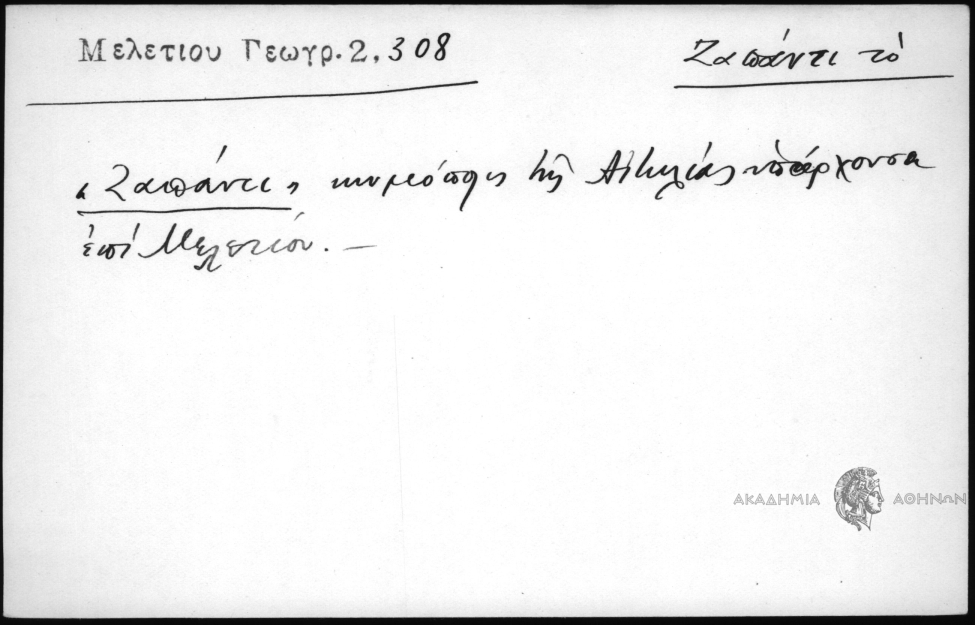 Μελετιου Γεωγρ. 2, 308
Ζαπάντι τό
«Ζαπάντι» κωμόπολις τῆς Αἰτωλίας ὑπάρχουσα
ἐπί Μελετίου. —
ΑΚΑΔΗΜΙΑ ΑΘΗΝΩΝ